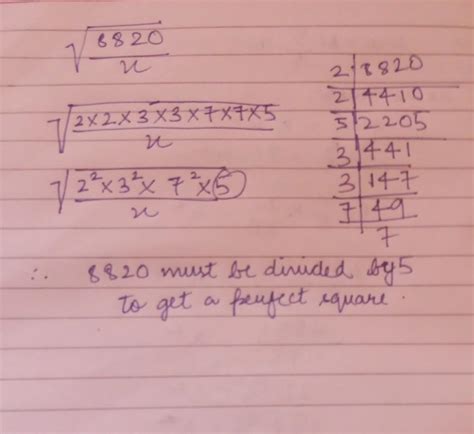 √(8820/x)
√(2×2×3×3×7×7×5/x)
√(2²×3²×7²×5/x)
2|8820
2|4410
5|2205
3|441
3|147
7|49
7
∴ 8820 must be divided by 5
to get a perfect square.